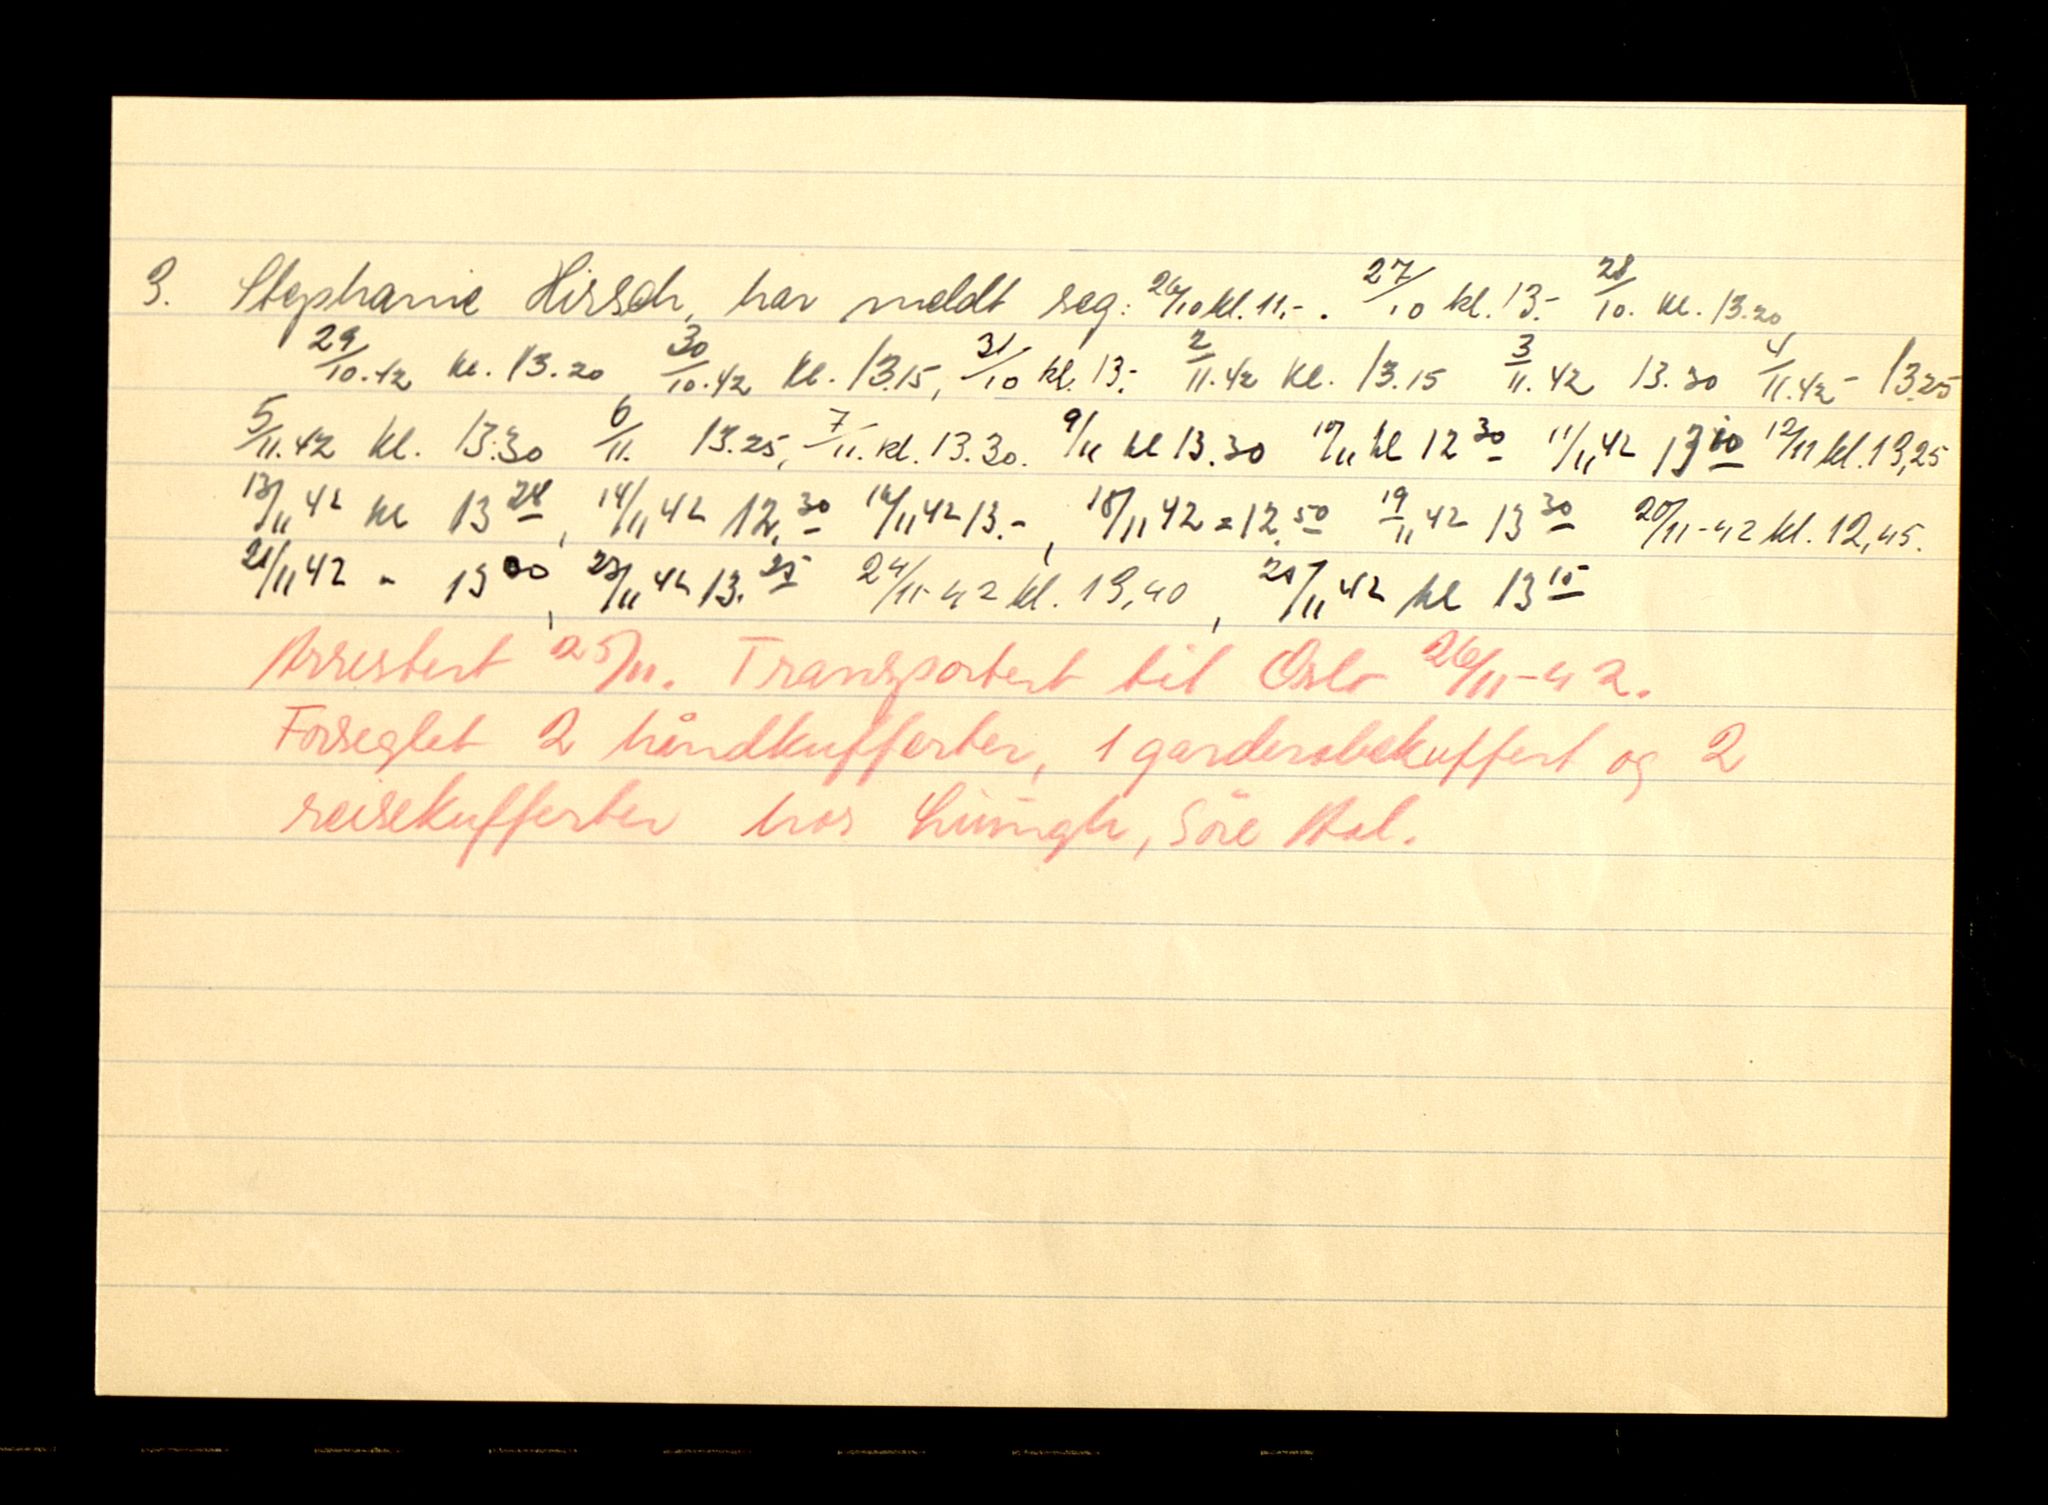 3. Stephanie Hirsch, har meldt seg: 26/10 kl. 11,-. 27/10 kl. 13.- 28/10. kl. 13.20,
29/10.42 kl. 13.20 30/10.42 kl. 13.15, 31/10 kl. 13.- 2/11.42 kl. 13.15 3/11.42 13.30 4/11.42 - 13.25
5/11.42 kl. 13.30 6/11. 13.25, 7/11. kl. 13.30. 9/11 kl 13.30 10/11 kl 12 30 11/11 42 13 12/11 kl. 13,25
13/11 42 kl 13 28, 14/11 42 12.30 16/11 42 13.-, 18/11 42 = 12.50 19/11 42 13 30 20/11-42 kl. 12,45.
21/11 42 - 13 00, 23/11 42 13.25 24/11-42 kl. 13,40, 25/11 42 kl 13 15
Arrestert 25/11. Transportert til Oslo 26/11-42.
Forseglet 2 håndkufferter, 1 garderobekuffert og 2
reisekufferter hos Søre Aal.